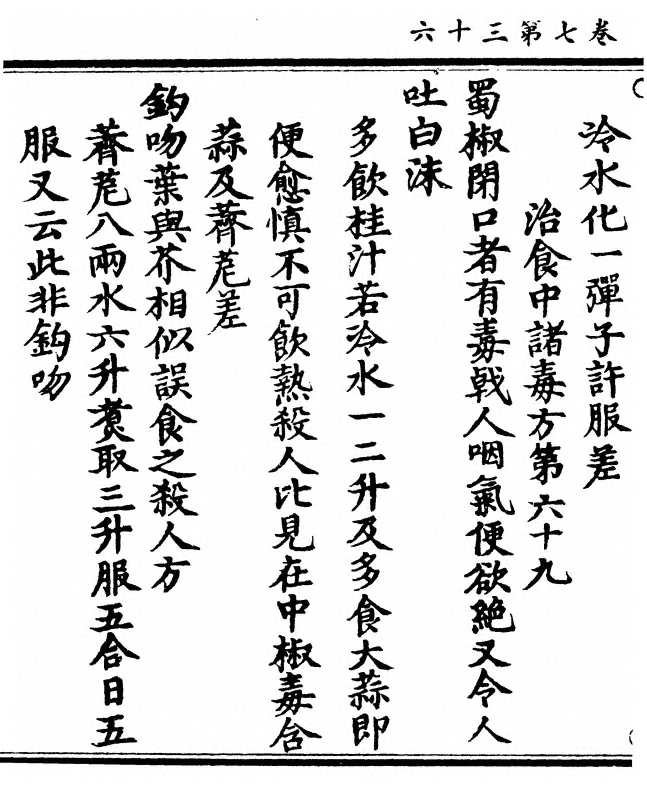 卷七第三十六
冷水化一彈子許服差
治食中諸毒方第六十九
蜀椒閉口者有毒戟人咽氣便欲絕又令人
吐白沫
多飲桂汁若冷水一二升及多食大蒜即
便愈慎不可飲熱殺人比見在中椒毒含
蒜及薺苨差
鈎吻葉與芥相似誤食之殺人方
薺苨八兩水六升煑取三升服五合日五
服又云此非鈎吻